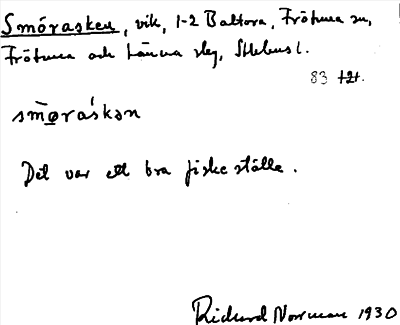 Smörasken, vik, 1-2 Baltora, Frötuna sn,
Frötuna och Länna slg, Sthlms l.
83
smøráskən
Det var ett bra fiskeställe.
Richard Norrman 1930